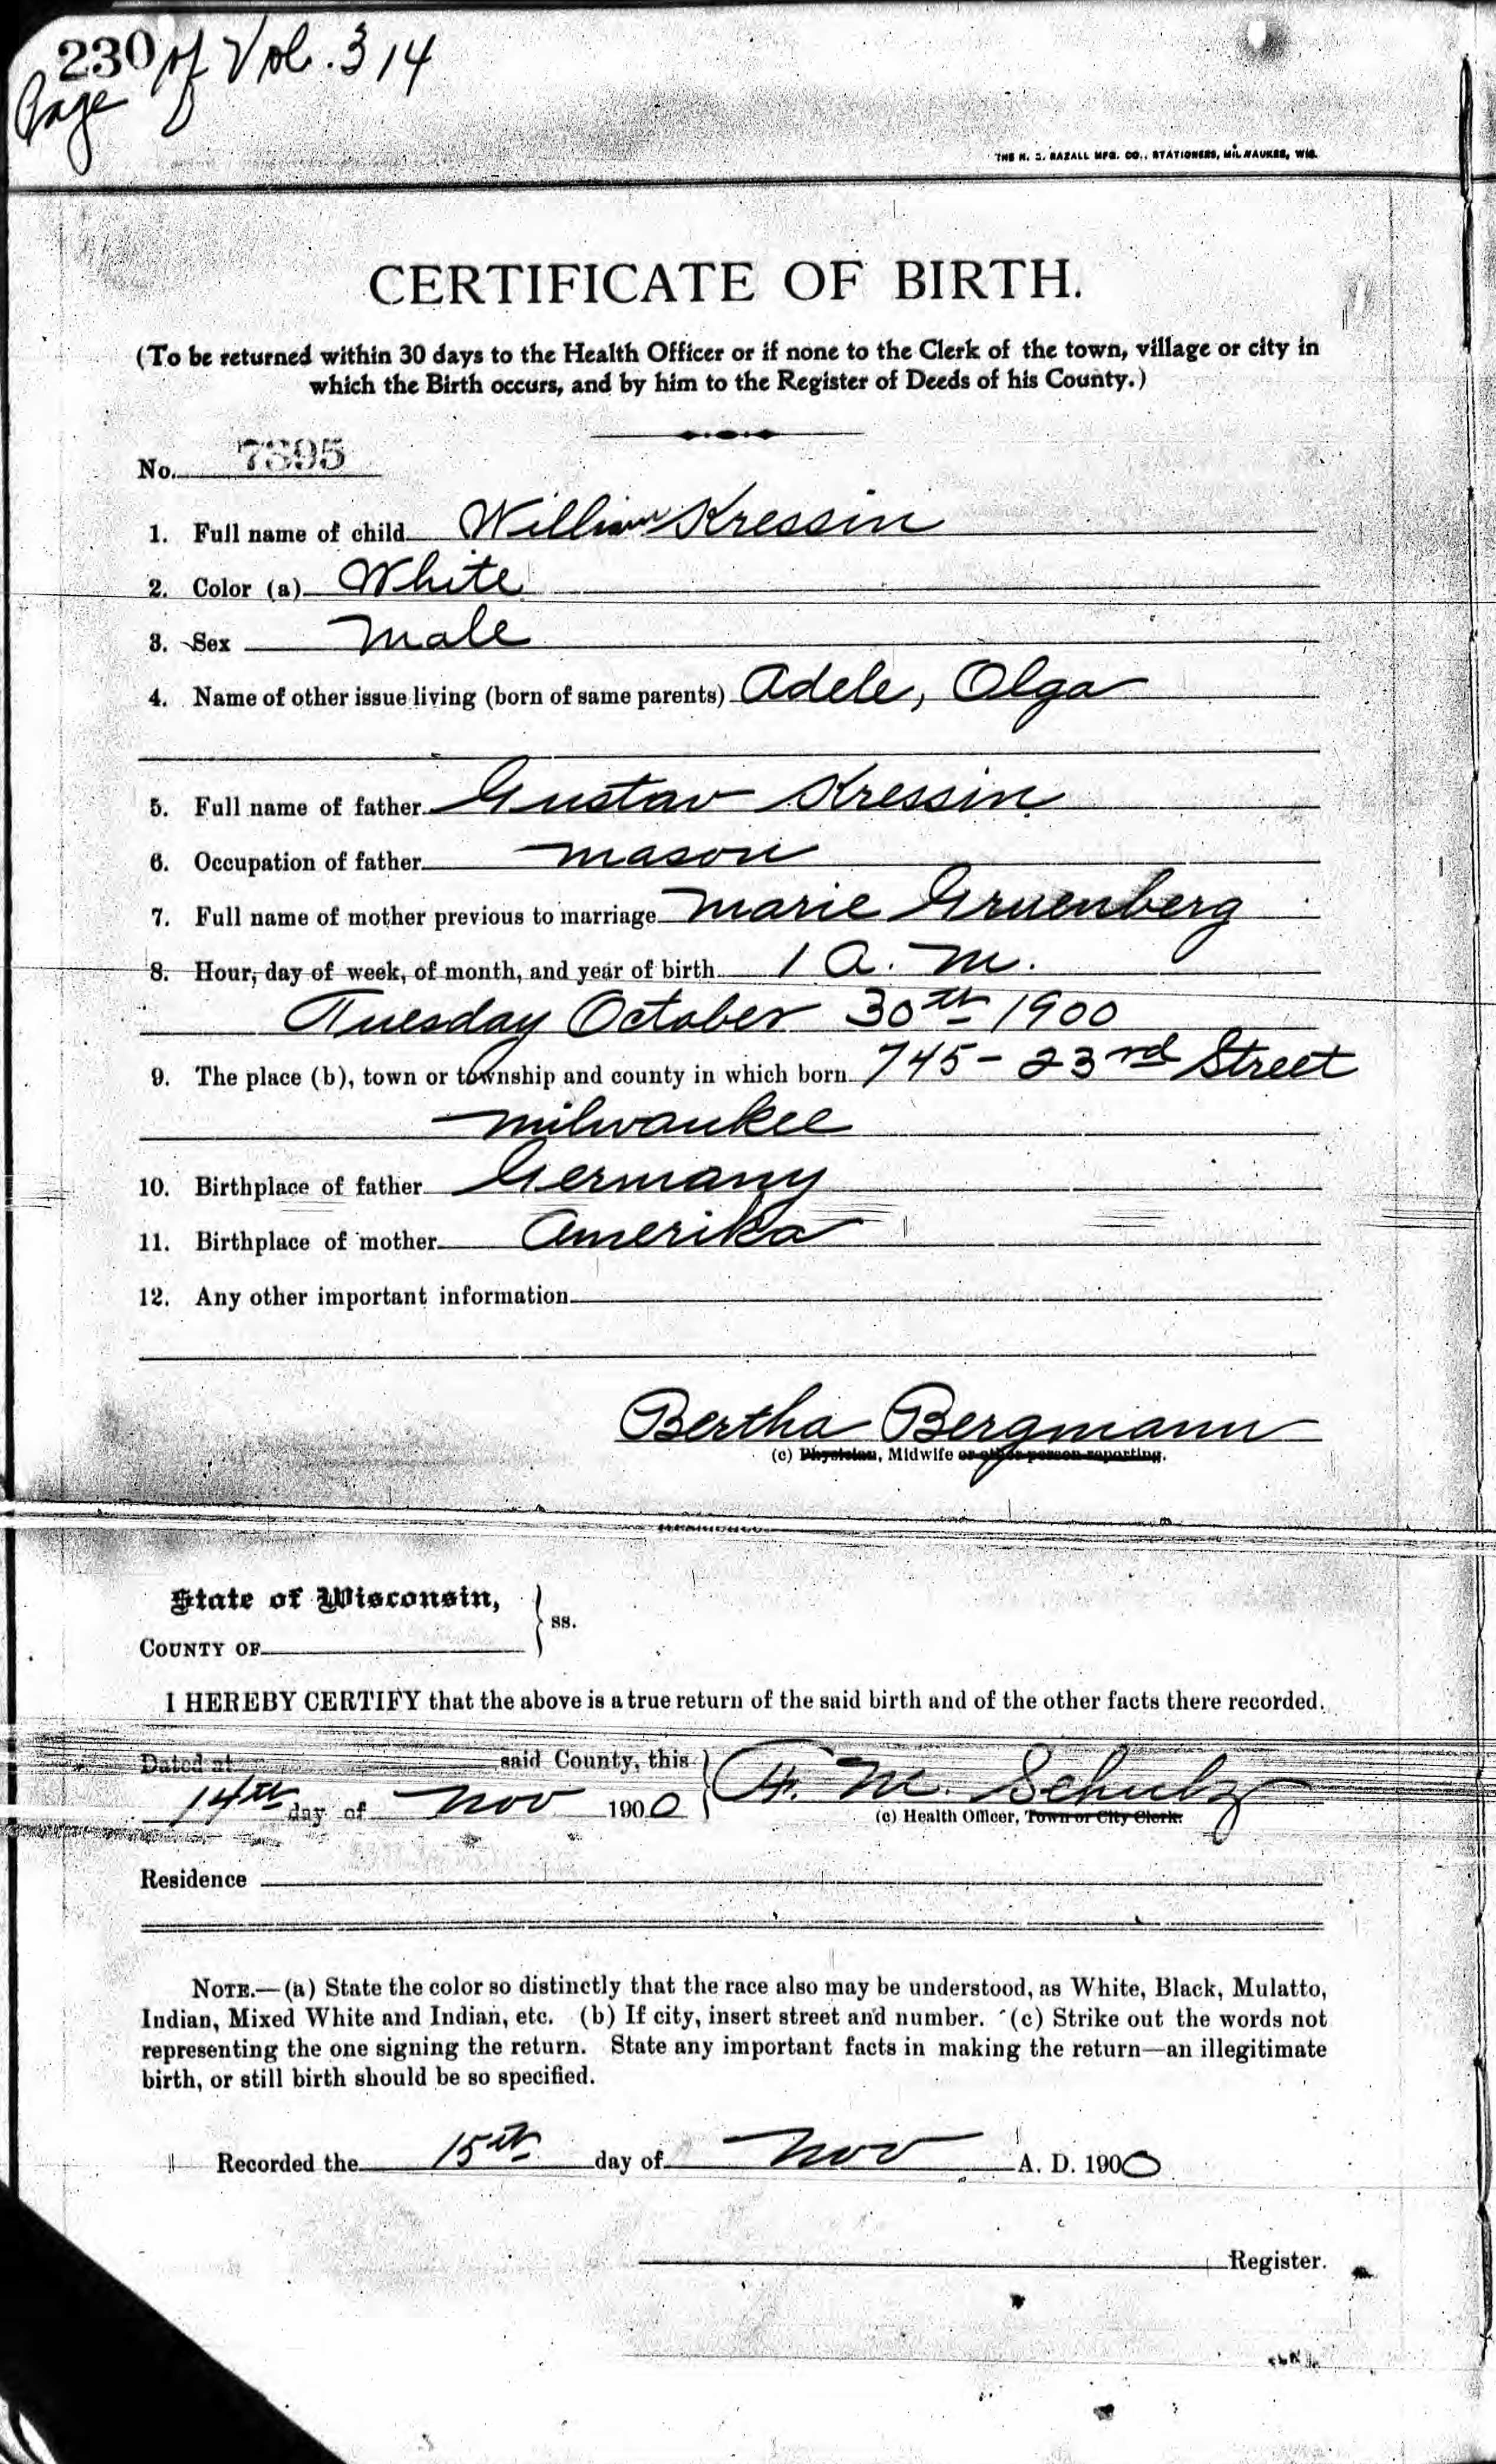 230 of Vol. 314
Page
THE H. C. RAZALL MFG. CO., STATIONERS, MILWAUKEE, WIS.
CERTIFICATE OF BIRTH.
(To be returned within 30 days to the Health Officer or if none to the Clerk of the town, village or city in
which the Birth occurs, and by him to the Register of Deeds of his County.)
No. 7895
1. Full name of child William Kressin
2. Color (a) White
3. Sex Male
4. Name of other issue living (born of same parents) Adele, Olga
5. Full name of father Gustav Kressin
6. Occupation of father mason
7. Full name of mother previous to marriage Marie Gruenberg
8. Hour, day of week, of month, and year of birth 1 A. M.
Tuesday October 30th 1900
9. The place (b), town or township and county in which born 745 - 23rd Street
Milwaukee
10. Birthplace of father Germany
11. Birthplace of mother Amerika
12. Any other important information
Bertha Bergmann
(c) Physician, Midwife or other person reporting.
State of Wisconsin,
COUNTY OF } ss.
I HEREBY CERTIFY that the above is a true return of the said birth and of the other facts there recorded.
Dated at said County, this
14th day of Nov 1900 } F. M. Schulz
(c) Health Officer, Town or City Clerk.
Residence
NOTE.—(a) State the color so distinctly that the race also may be understood, as White, Black, Mulatto,
Indian, Mixed White and Indian, etc. (b) If city, insert street and number. (c) Strike out the words not
representing the one signing the return. State any important facts in making the return—an illegitimate
birth, or still birth should be so specified.
Recorded the 15th day of Nov A. D. 1900
Register.